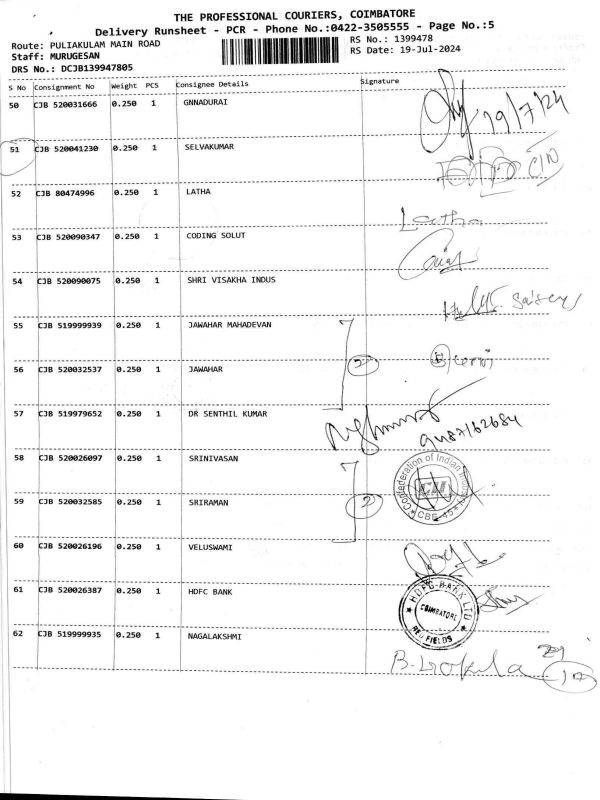 THE PROFESSIONAL COURIERS, COIMBATORE
Delivery Runsheet - PCR - Phone No.:0422-3505555 - Page No.:5
Route: PULIAKULAM MAIN ROAD RS No.: 1399478
Staff: MURUGESAN RS Date: 19-Jul-2024
DRS No.: DCJB139947805
S No Consignment No Weight PCS Consignee Details Signature
50 CJB 520031666 0.250 1 GNNADURAI 19/7/24
51 CJB 520041230 0.250 1 SELVAKUMAR
52 CJB 80474996 0.250 1 LATHA Latha
53 CJB 520090347 0.250 1 CODING SOLUT
54 CJB 520090075 0.250 1 SHRI VISAKHA INDUS
55 CJB 519999939 0.250 1 JAWAHAR MAHADEVAN
56 CJB 520032537 0.250 1 JAWAHAR 2
57 CJB 519979652 0.250 1 DR SENTHIL KUMAR 9487162684
58 CJB 520026097 0.250 1 SRINIVASAN
Confederation of Indian Industry
CII
59 CJB 520032585 0.250 1 SRIRAMAN 2
* CBE-45 *
60 CJB 520026196 0.250 1 VELUSWAMI
61 CJB 520026387 0.250 1 HDFC BANK
HDFC BANK LTD
COIMBATORE
RED FIELDS
62 CJB 519999935 0.250 1 NAGALAKSHMI
B. Gokila